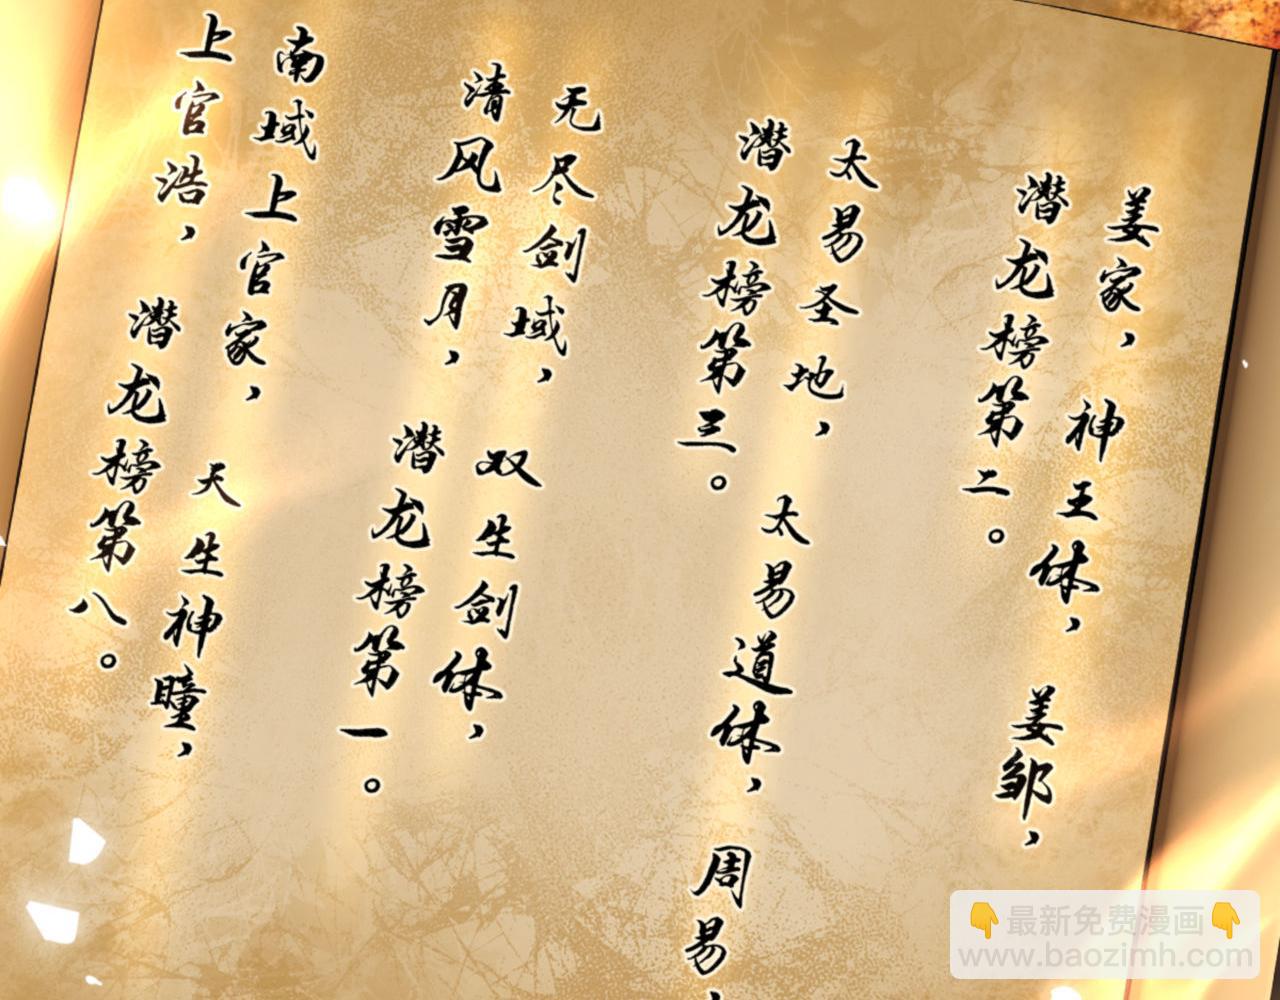 姜家，神王体，姜邹，
潜龙榜第二。
太易圣地，太易道体，周易，
潜龙榜第三。
无尽剑域，双生剑体，
清风雪月，潜龙榜第一。
南域上官家，天生神瞳，
上官浩，潜龙榜第八。
👇最新免费漫画👇
www.baozimh.com